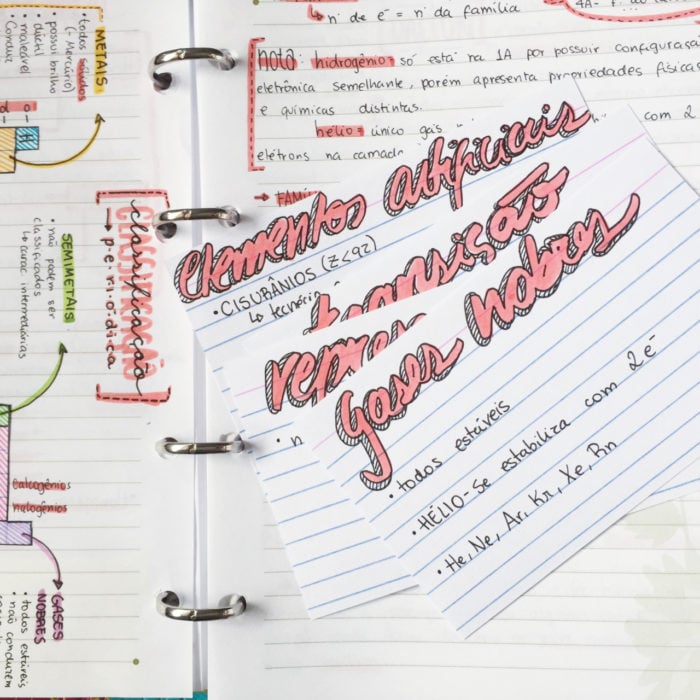 METAIS
• todos sólidos
(- Mercúrio)
• possui brilho
• dúctil
• maleável
SEMIMETAIS
• não podem ser
classificados
↳ carac intermediárias
CLASSIFICAÇÃO
classificação
→ p-e-r-i-ó-d-i-c-a
calcogênios
halogênios
GASES
NOBRES
• todos estáveis
• não conduzem
↳ nº de é = nº da família
nota: hidrogênio: só está na 1A por possuir
eletrônica semelhante, porém apresenta propriedades físicas
e químicas distintas.
hélio: único gás com 2
elétrons na camada
elementos artificiais
• CISURÂNIOS (Z<92)
transição
Gases nobres
• todos estáveis
• HÉLIO - se estabiliza com 2 é
• He, Ne, Ar, Kr, Xe, Rn